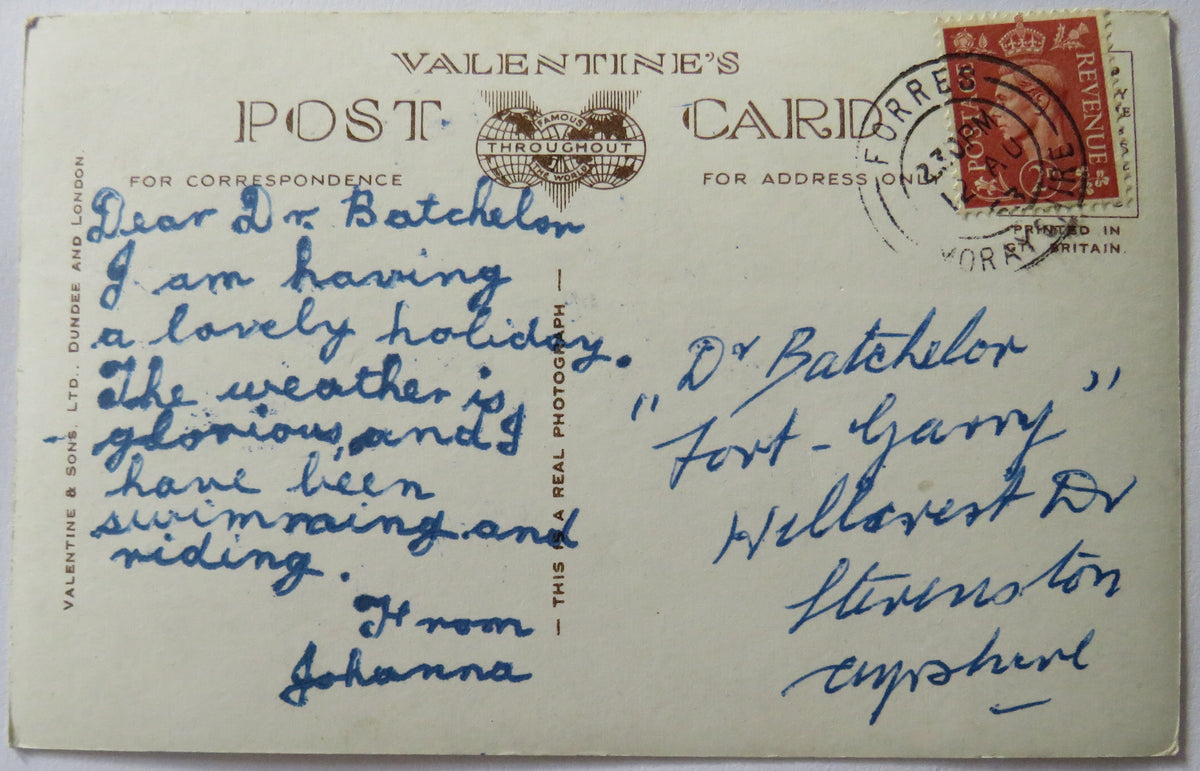 VALENTINE'S
POST CARD
FAMOUS
THROUGHOUT
THE WORLD
FOR CORRESPONDENCE
FOR ADDRESS ONLY
VALENTINE & SONS, LTD., DUNDEE AND LONDON.
Dear Dr. Batchelor
I am having
a lovely holiday.
The weather is
glorious, and I
have been
swimming and
riding.
From
Johanna
— THIS IS A REAL PHOTOGRAPH —
POSTAGE REVENUE
2
FORRES
230PM
AU
MORAYSHIRE
PRINTED IN
GT. BRITAIN.
"Dr Batchelor
Fort-Garry"
Hillcrest Dr
Stevenston
Ayrshire